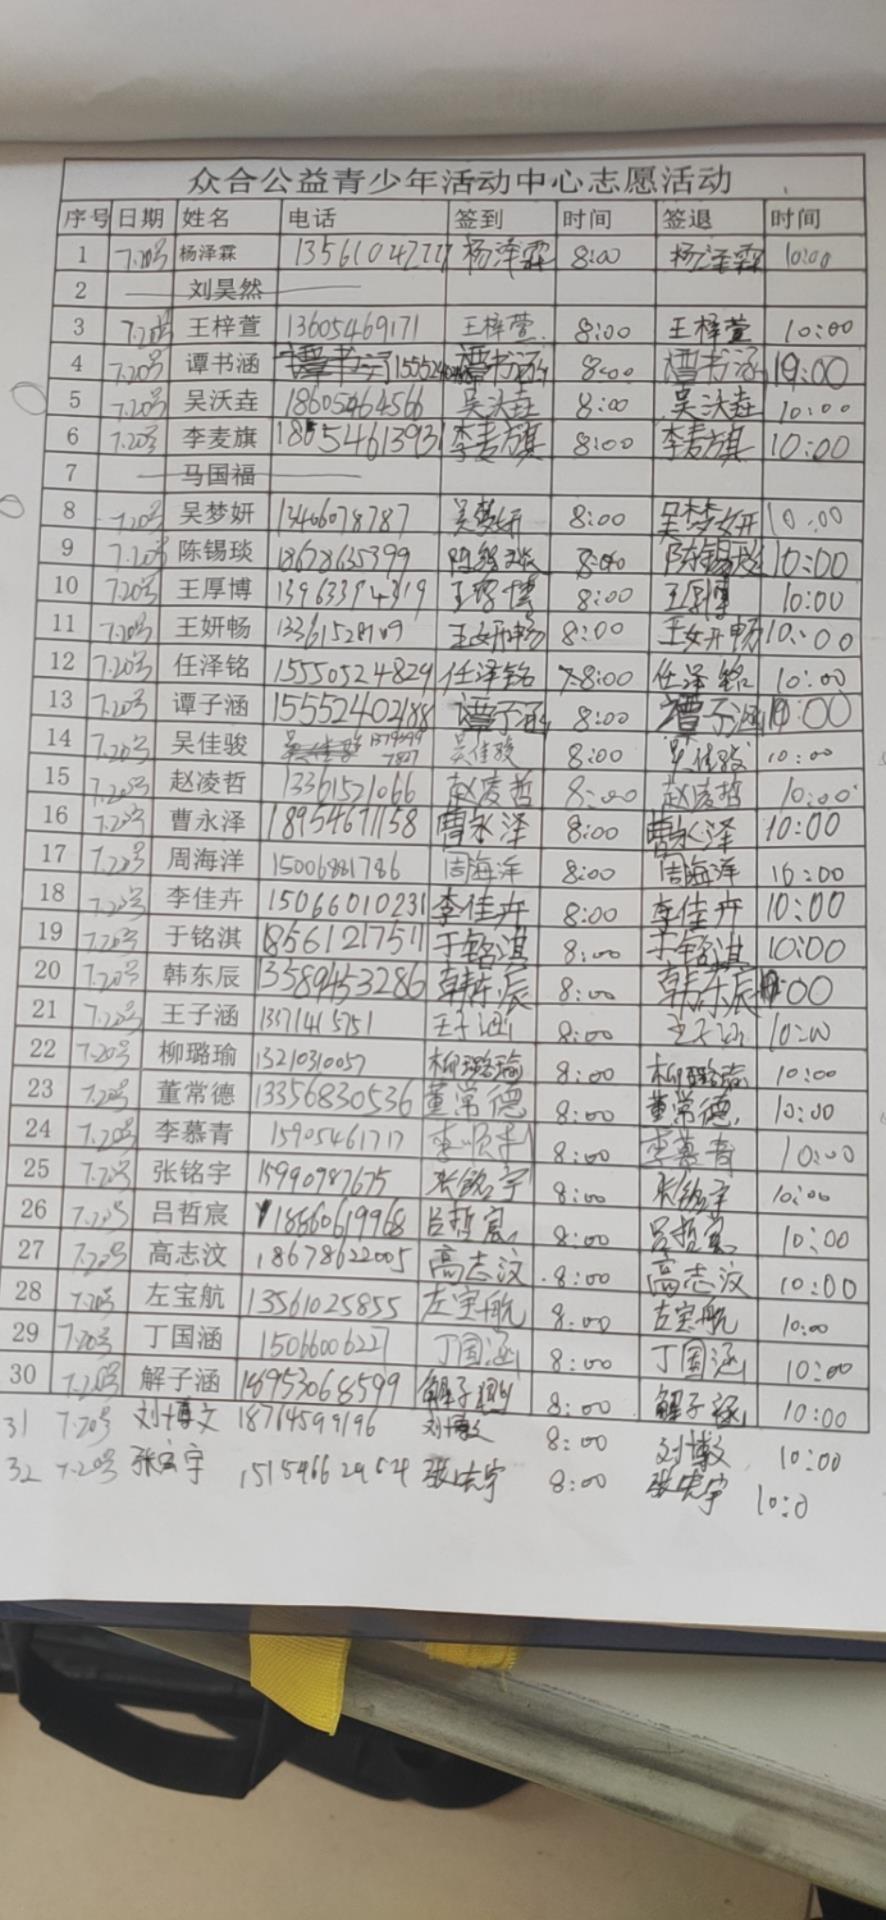 众合公益青少年活动中心志愿活动
序号 日期 姓名 电话 签到 时间 签退 时间
1 7.20号 杨泽霖 杨泽霖 8:00 杨泽霖 10:00
2 刘昊然
3 7.20号 王梓萱 13605469171 王梓萱 8:00 王梓萱 10:00
4 7.20号 谭书涵 谭书涵 8:00 谭书涵 10:00
5 7.20号 吴沃垚 18605464566 吴沃垚 8:00 吴沃垚 10:00
6 7.20号 李麦旗 18654613931 李麦旗 8:00 李麦旗 10:00
7 马国福
8 7.20号 吴梦妍 13406078787 吴梦妍 8:00 吴梦妍 10:00
9 7.20号 陈锡琰 18678635399 陈锡琰 8:00 陈锡琰 10:00
10 7.20号 王厚博 13963394319 王厚博 8:00 王厚博 10:00
11 7.20号 王妍畅 王妍畅 8:00 王妍畅 10:00
12 7.20号 任泽铭 15550524829 任泽铭 8:00 任泽铭 10:00
13 7.20号 谭子涵 15552402188 谭子涵 8:00 谭子涵 10:00
14 7.20号 吴佳骏 吴佳骏 8:00 吴佳骏 10:00
15 7.20号 赵凌哲 13361521066 赵凌哲 8:00 赵凌哲 10:00
16 7.20号 曹永泽 18954671158 曹永泽 8:00 曹永泽 10:00
17 7.20号 周海洋 15006881786 周海洋 8:00 周海洋 10:00
18 7.20号 李佳卉 15066010231 李佳卉 8:00 李佳卉 10:00
19 7.20号 于铭淇 18561217511 于铭淇 8:00 于铭淇 10:00
20 7.20号 韩东辰 13589453286 韩东辰 8:00 韩东辰
21 7.20号 王子涵 13371415751 王子涵 8:00 王子涵 10:00
22 7.20号 柳璐瑜 13210310057 柳璐瑜 8:00 柳璐瑜 10:00
23 7.20号 董常德 13356830536 董常德 8:00 董常德 10:00
24 7.20号 李慕青 15905461717 8:00 李慕青 10:00
25 7.20号 张铭宇 15990987675 张铭宇 8:00 张铭宇 10:00
26 7.20号 吕哲宸 18660619968 吕哲宸 8:00 吕哲宸 10:00
27 7.20号 高志汶 18678622005 高志汶 8:00 高志汶 10:00
28 7.20号 左宝航 13561025855 左宝航 8:00 左宝航 10:00
29 7.20号 丁国涵 15066006227 丁国涵 8:00 丁国涵 10:00
30 7.20号 解子涵 18953068599 解子涵 8:00 解子涵 10:00
31 7.20号 刘博文 18764599196 刘博文 8:00 刘博文 10:00
32 7.20号 8:00 10:0